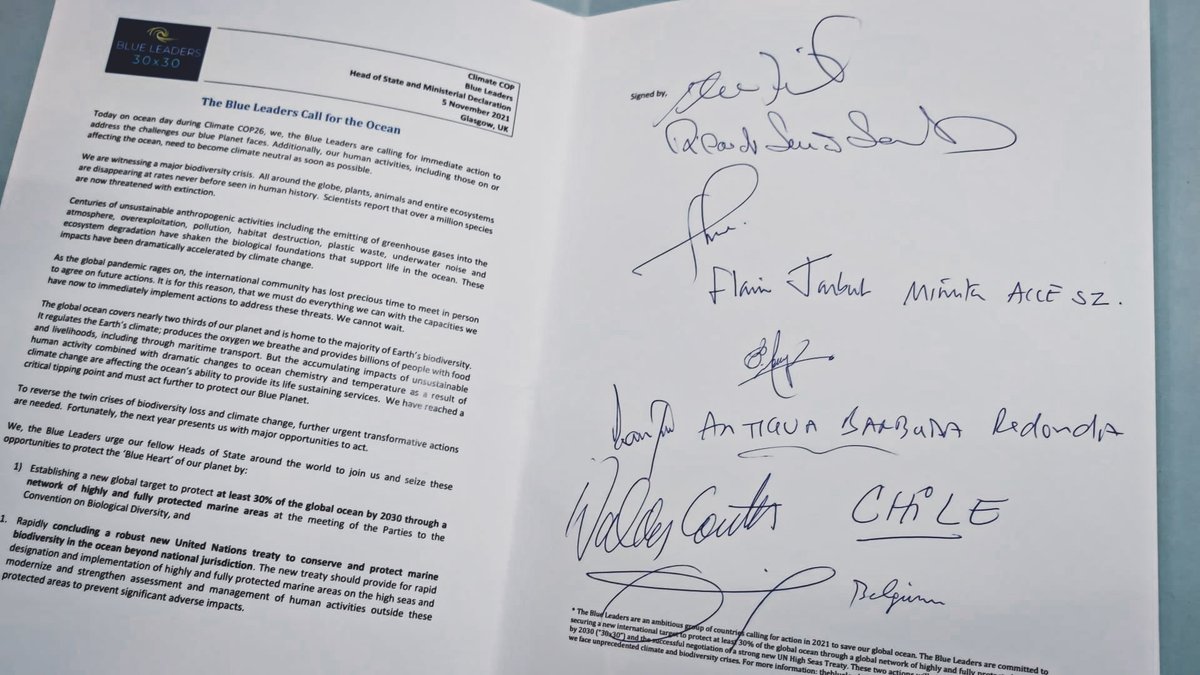 BLUE LEADERS
30x30
Climate COP
Blue Leaders
Head of State and Ministerial Declaration
5 November 2021
Glasgow, UK
The Blue Leaders Call for the Ocean
Today on ocean day during Climate COP26, we, the Blue Leaders are calling for immediate action to
address the challenges our blue Planet faces. Additionally, our human activities, including those on or
affecting the ocean, need to become climate neutral as soon as possible.
We are witnessing a major biodiversity crisis. All around the globe, plants, animals and entire ecosystems
are disappearing at rates never before seen in human history. Scientists report that over a million species
are now threatened with extinction.
Centuries of unsustainable anthropogenic activities including the emitting of greenhouse gases into the
atmosphere, overexploitation, pollution, habitat destruction, plastic waste, underwater noise and
ecosystem degradation have shaken the biological foundations that support life in the ocean. These
impacts have been dramatically accelerated by climate change.
As the global pandemic rages on, the international community has lost precious time to meet in person
to agree on future actions. It is for this reason, that we must do everything we can with the capacities we
have now to immediately implement actions to address these threats. We cannot wait.
The global ocean covers nearly two thirds of our planet and is home to the majority of Earth's biodiversity.
It regulates the Earth's climate; produces the oxygen we breathe and provides billions of people with food
and livelihoods, including through maritime transport. But the accumulating impacts of unsustainable
human activity combined with dramatic changes to ocean chemistry and temperature as a result of
climate change are affecting the ocean's ability to provide its life sustaining services. We have reached a
critical tipping point and must act further to protect our Blue Planet.
To reverse the twin crises of biodiversity loss and climate change, further urgent transformative actions
are needed. Fortunately, the next year presents us with major opportunities to act.
We, the Blue Leaders urge our fellow Heads of State around the world to join us and seize these
opportunities to protect the 'Blue Heart' of our planet by:
1) Establishing a new global target to protect at least 30% of the global ocean by 2030 through a
network of highly and fully protected marine areas at the meeting of the Parties to the
Convention on Biological Diversity, and
1. Rapidly concluding a robust new United Nations treaty to conserve and protect marine
biodiversity in the ocean beyond national jurisdiction. The new treaty should provide for rapid
designation and implementation of highly and fully protected marine areas on the high seas and
modernize and strengthen assessment and management of human activities outside these
protected areas to prevent significant adverse impacts.
Signed by,
ANTIGUA BARBUDA Redonda
CHILE
Belgium
* The Blue Leaders are an ambitious group of countries calling for action in 2021 to save our global ocean. The Blue Leaders are committed to
securing a new international target to protect at least 30% of the global ocean through a global network of highly and fully protected
by 2030 ("30x30") and the successful negotiation of a strong new UN High Seas Treaty. These two actions
we face unprecedented climate and biodiversity crises. For more information: